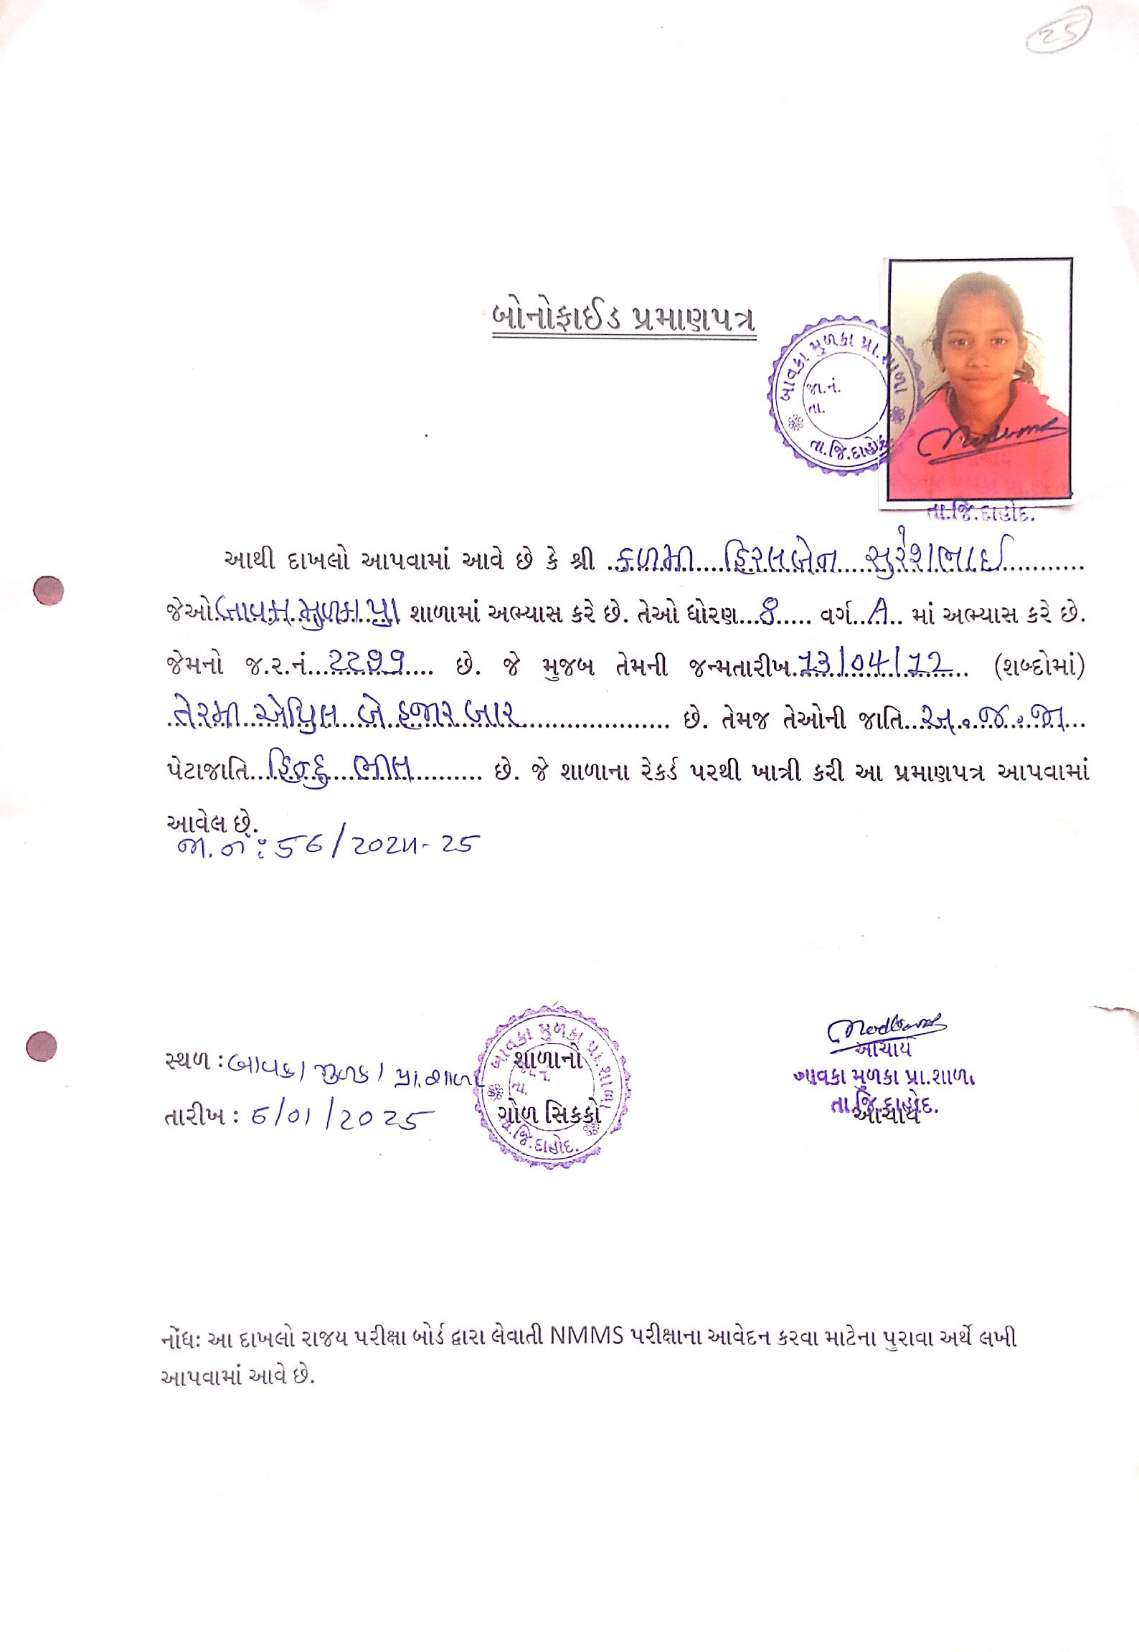 25
બોનોફાઈડ પ્રમાણપત્ર
બાવકા મુળકા પ્રા.શાળા
જા.નં.
તા.
તા.જિ.દાહોદ
તા.જિ.દાહોદ.
આથી દાખલો આપવામાં આવે છે કે શ્રી ..કળમી....હિરલબેન....સુરેશભાઈ...........
જેઓ.બાવકા.મુળકા.પ્રા શાળામાં અભ્યાસ કરે છે. તેઓ ધોરણ...8..... વર્ગ..A.. માં અભ્યાસ કરે છે.
જેમનો જ.ર.નં...2299.... છે. જે મુજબ તેમની જન્મતારીખ.13/04/12.. (શબ્દોમાં)
.તેરમી..એપ્રિલ..બે.હજાર.બાર.................... છે. તેમજ તેઓની જાતિ...અ.જ.જા...
પેટાજાતિ..હિન્દુ...ભીલ.......... છે. જે શાળાના રેકર્ડ પરથી ખાત્રી કરી આ પ્રમાણપત્ર આપવામાં
આવેલ છે.
જા.નં : 56/2024-25
સ્થળ : બાવકા મુળકા પ્રા.શાળા
તારીખ : 6/01/2025
બાવકા મુળકા પ્રા.શાળા
શાળાનો
તા.
ગોળ સિક્કો
તા.જિ.દાહોદ.
આચાર્ય
બાવકા મુળકા પ્રા.શાળા
તા.જિ.દાહોદ.
આચાર્ય
નોંધ: આ દાખલો રાજય પરીક્ષા બોર્ડ દ્વારા લેવાતી NMMS પરીક્ષાના આવેદન કરવા માટેના પુરાવા અર્થે લખી
આપવામાં આવે છે.